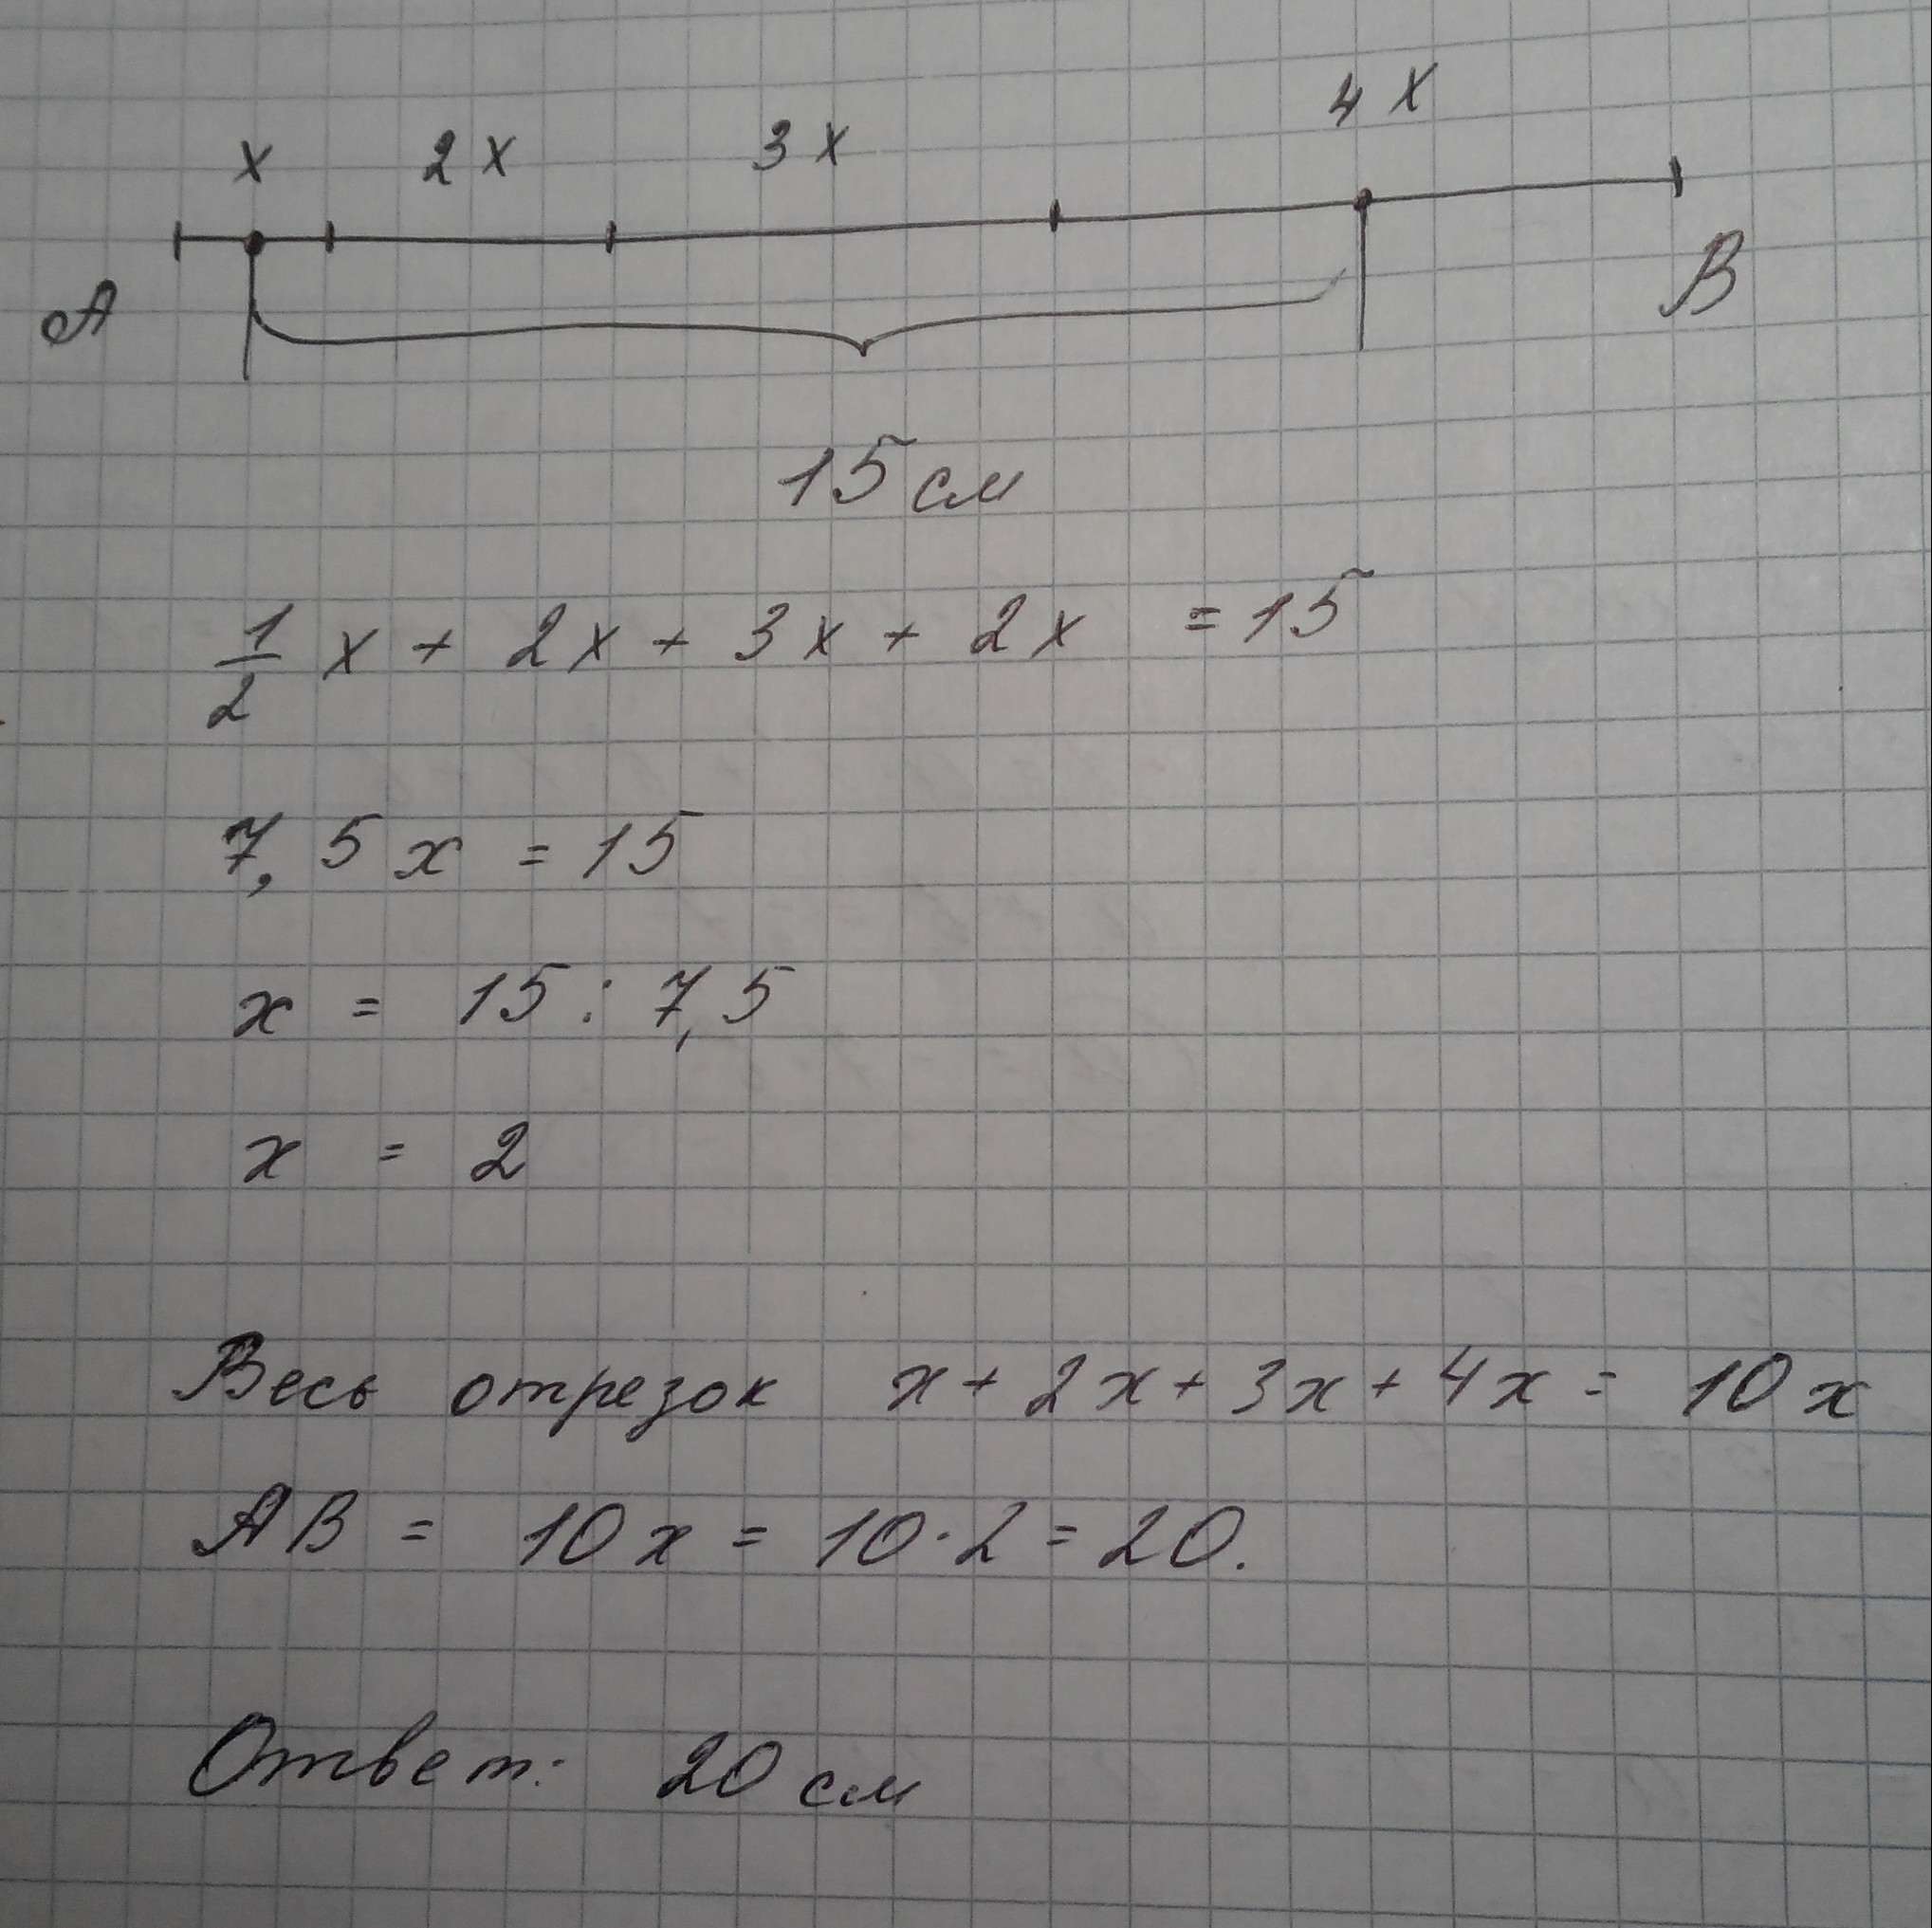 x 2x 3x 4x
A B
15 см
1/2 x + 2x + 3x + 2x = 15
7,5x = 15
x = 15 : 7,5
x = 2
Весь отрезок x + 2x + 3x + 4x = 10x
AB = 10x = 10·2 = 20.
Ответ: 20 см